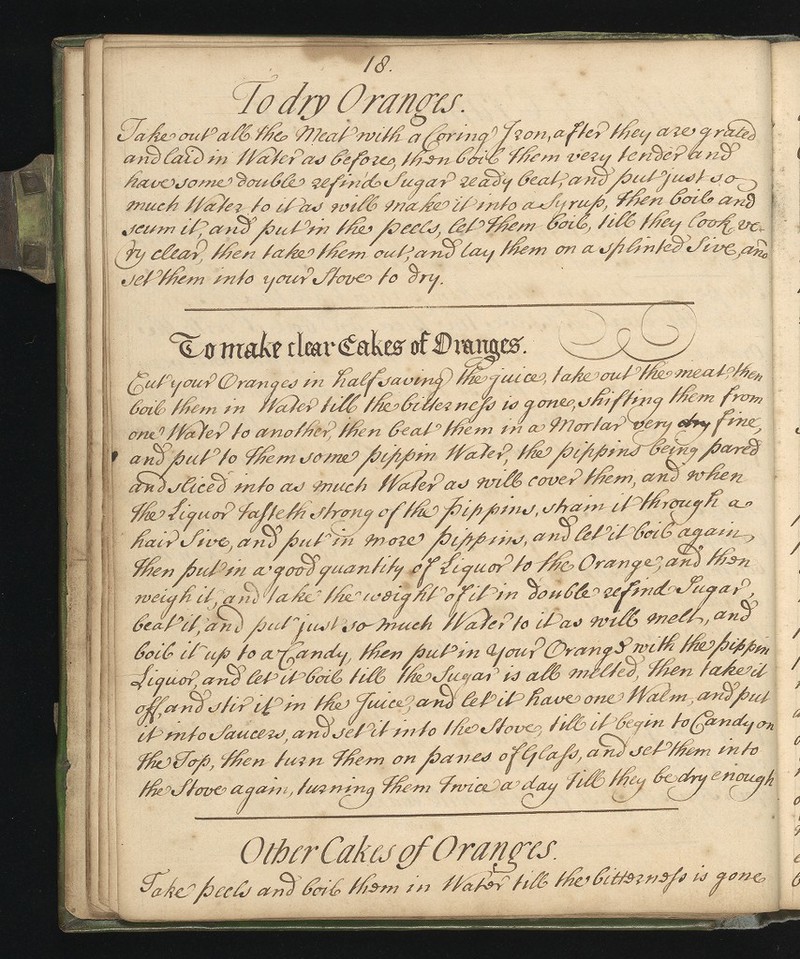 18.
To dry Oranges.
Take out all the Meat with a Coring Iron, after they are grated
and laid in Water as before, then boil them very tender and
have some double refind Sugar ready beat, and put just so
much Water to it as will make it into a Syrup, then boil and
scum it, and put in the peels, let them boil, till they look ve-
ry clear, then take them out, and lay them on a splinted Sive, and
set them into your Stove to dry.
To make clear Cakes of Oranges.
Cut your Oranges in half saving the juice, take out the meat, then
boil them in Water till the bitterness is gone, shifting them from
one Water to another, then beat them in a Mortar very dry fine,
and put to them some pippin Water, the pippins being pared
and sliced into as much Water as will cover them, and when
the Liquor tasteth strong of the Pippins, strain it through a
hair Sive, and put in more Pippins, and let it boil again,
then put in a good quantity of Liquor to the Orange, and then
weigh it, and take the weight of it in double refind Sugar,
beat it, and put just so much Water to it as will melt, and
boil it up to a Candy, then put in your Orange with the pippin
Liquor, and let it boil till the Sugar is all melted, then take it
off, and stir it in the Juice, and let it have one Walm, and put
it into Saucers, and set it into the Stove, till it begin to Candy on
the Top, then turn them on panes of Glass, and set them into
the Stove again, turning them twice a day till they be dry enough
Other Cakes of Oranges.
Take peels and boil them in Water till the bitterness is gone